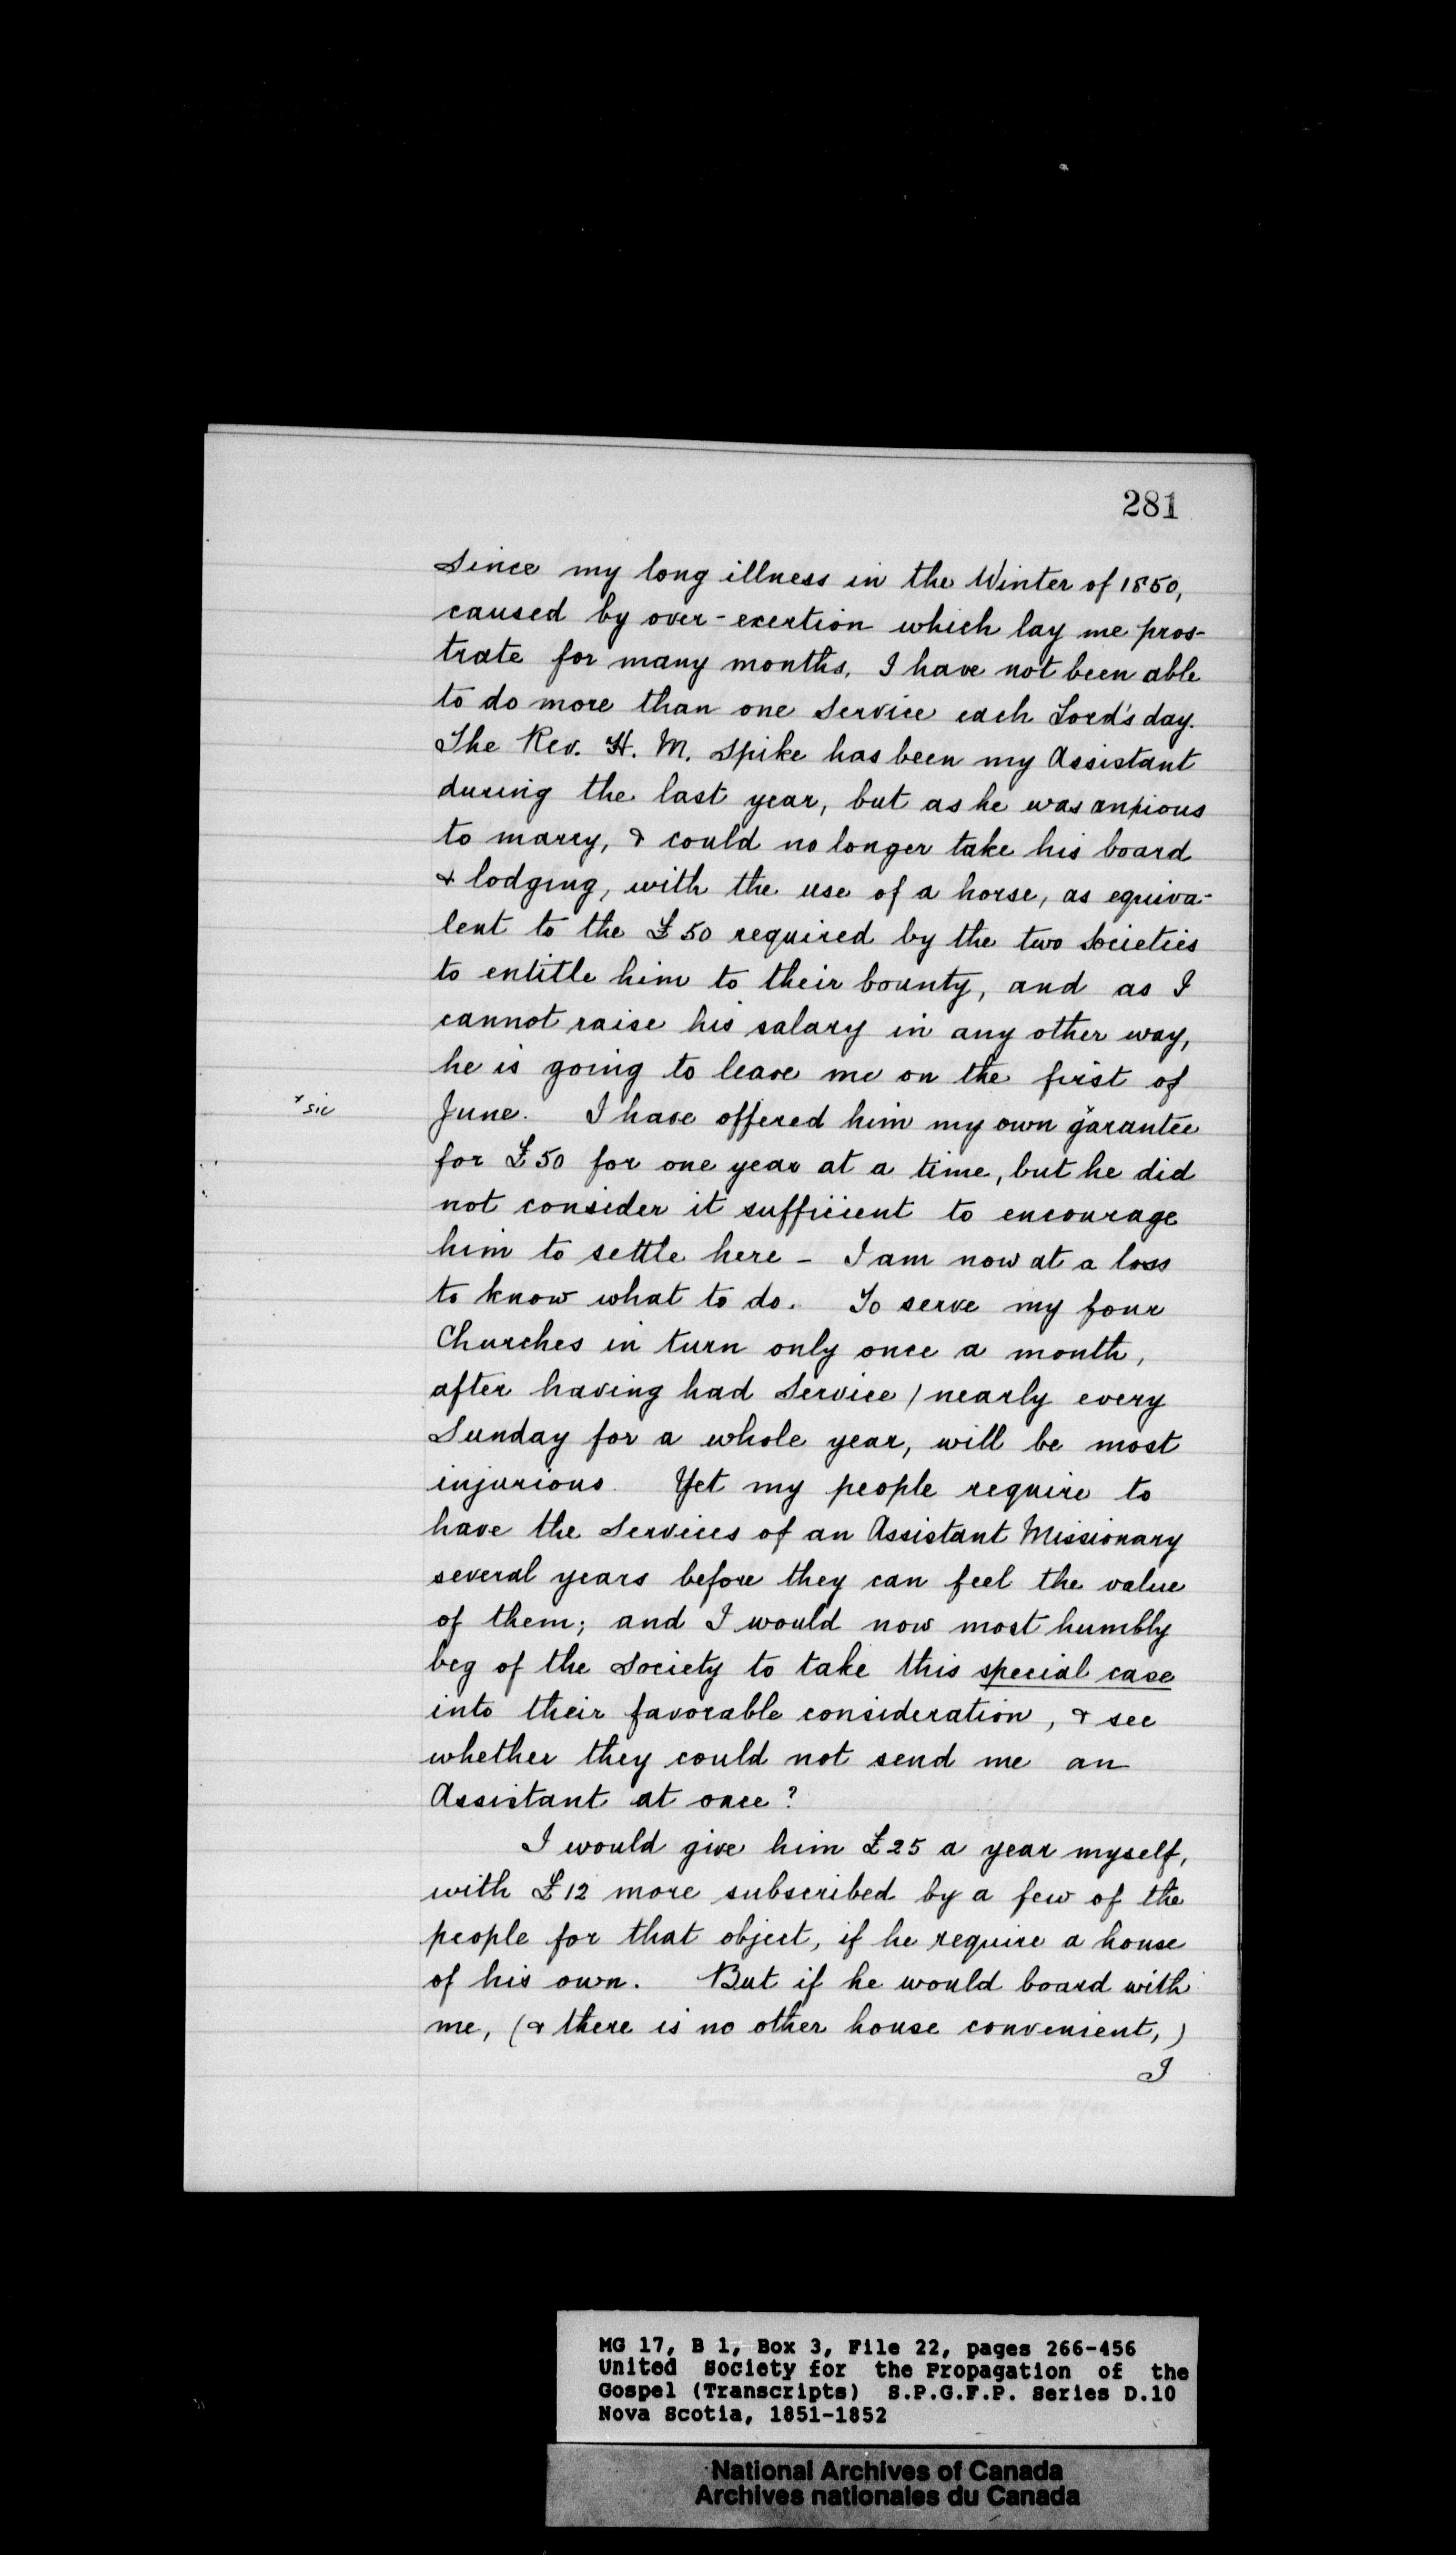 281
Since my long illness in the Winter of 1850,
caused by over-exertion which lay me pros-
trate for many months, I have not been able
to do more than one Service each Lord's day.
The Rev. H. M. Spike has been my Assistant
during the last year, but as he was anxious
to marry, & could no longer take his board
& lodging, with the use of a horse, as equiva-
lent to the £50 required by the two Societies
to entitle him to their bounty, and as I
cannot raise his salary in any other way,
he is going to leave me on the first of
+ sic
June. I have offered him my own garantee
for £50 for one year at a time, but he did
not consider it sufficient to encourage
him to settle here - I am now at a loss
to know what to do. To serve my four
Churches in turn only once a month,
after having had Service / nearly every
Sunday for a whole year, will be most
injurious. Yet my people require to
have the Services of an Assistant Missionary
several years before they can feel the value
of them; and I would now most humbly
beg of the Society to take this special case
into their favorable consideration, & see
whether they could not send me an
Assistant at once?
I would give him £25 a year myself,
with £12 more subscribed by a few of the
people for that object, if he require a house
of his own. But if he would board with
me, (& there is no other house convenient,)
I
MG 17, B 1, Box 3, File 22, pages 266-456
United Society for the Propagation of the
Gospel (Transcripts) S.P.G.F.P. Series D.10
Nova Scotia, 1851-1852
National Archives of Canada
Archives nationales du Canada